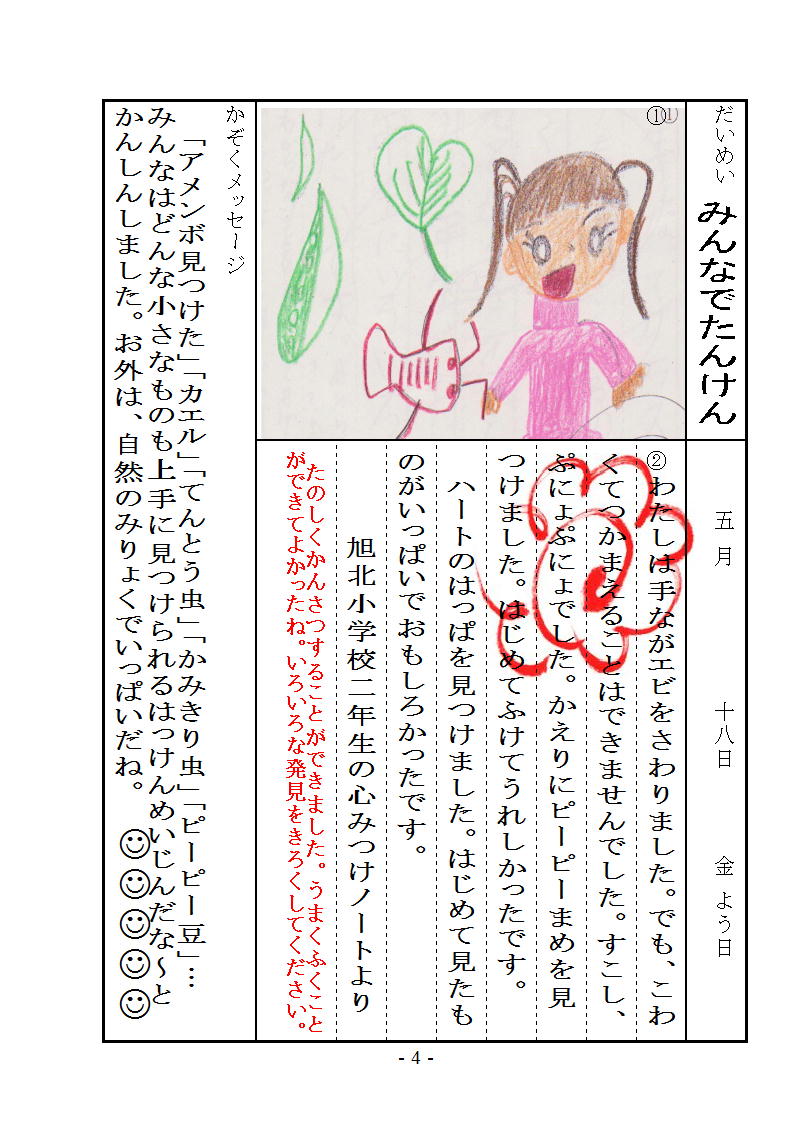 だいめい　みんなでたんけん
五月　十八日　金よう日
①
②わたしは手ながエビをさわりました。でも、こわ
くてつかまえることはできませんでした。すこし、
ぷにょぷにょでした。かえりにピーピーまめを見
つけました。はじめてふけてうれしかったです。
ハートのはっぱを見つけました。はじめて見たも
のがいっぱいでおもしろかったです。
旭北小学校二年生の心みつけノートより
たのしくかんさつすることができました。うまくふくこと
ができてよかったね。いろいろな発見をきろくしてください。
かぞくメッセージ
「アメンボ見つけた」「カエル」「てんとう虫」「かみきり虫」「ピーピー豆」…
みんなはどんな小さなものも上手に見つけられるはっけんめいじんだな～と
かんしんしました。お外は、自然のみりょくでいっぱいだね。
- 4 -